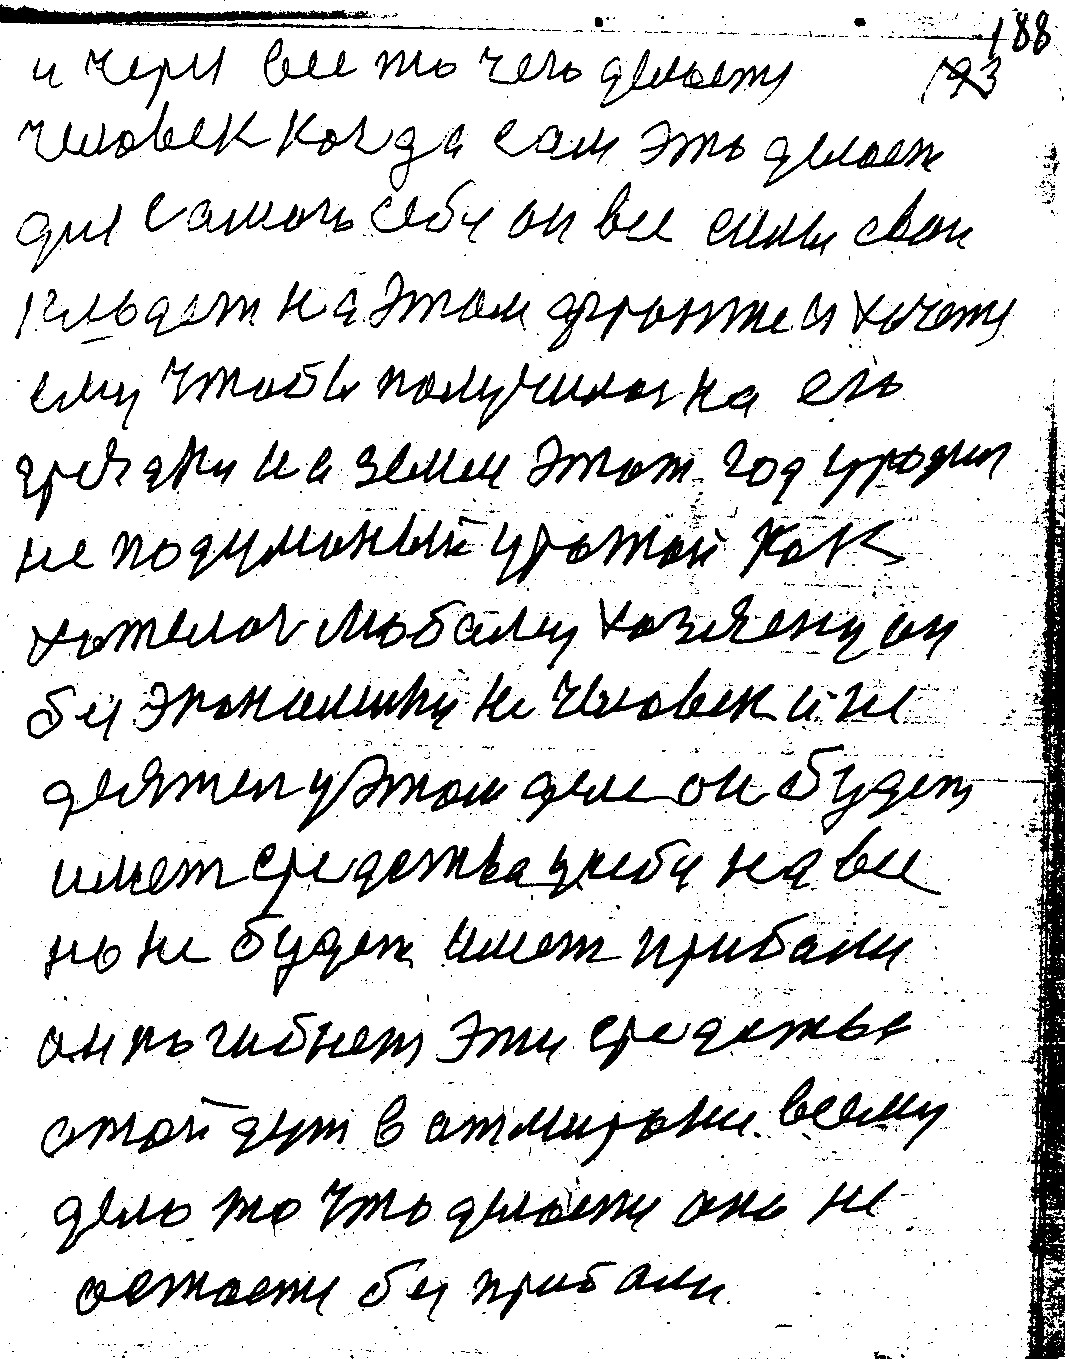 188
193
и через все то чего делаетя
человек когда сам это делает
для самого себя он все силы свои
кладет на этом фронте и хочетя
ему чтобы получилос на его
грядки на земли этот год уродил
не подуманый урожай как
хотелос любаму хозяену он
без экономики не человек и не
деятел у этом деле он будет
имет средства у себя на все
но не будет имет прибали
он погибнет эти средства
отойдут в отмирании всему
дело то что делаети оно не
остаети без прибали